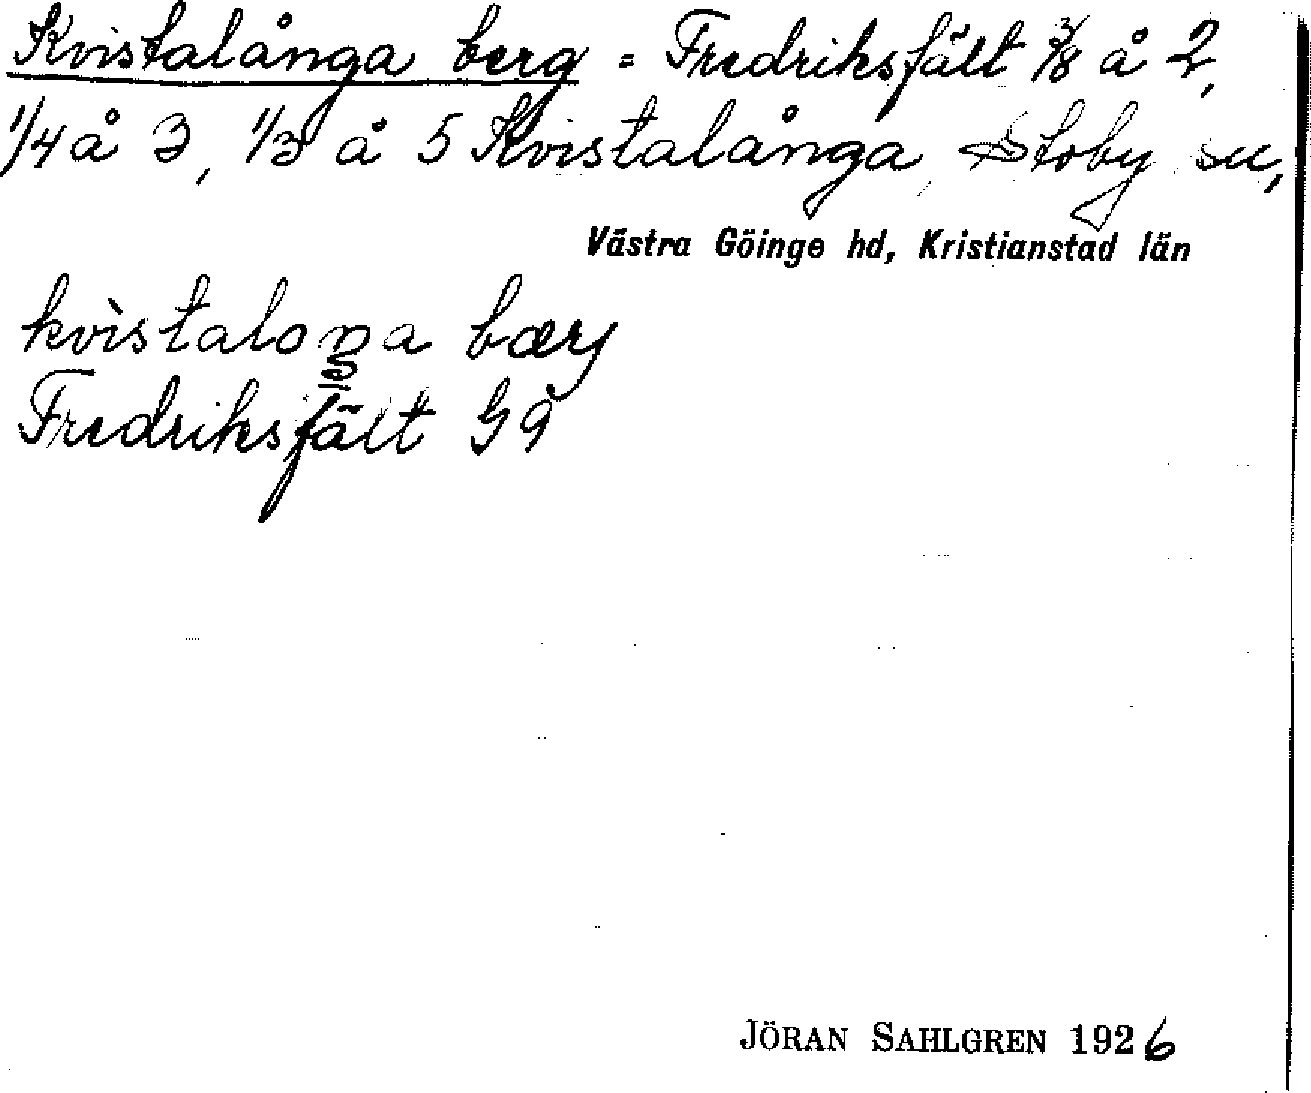 Kvistalånga berg = Fredriksfält 3/8 å 2,
1/4 å 3, 1/3 å 5 Kvistalånga, Stoby sn,
Västra Göinge hd, Kristianstad län
kvìstaloŋa bærj
Fredriksfält Gå
JÖRAN SAHLGREN 1926